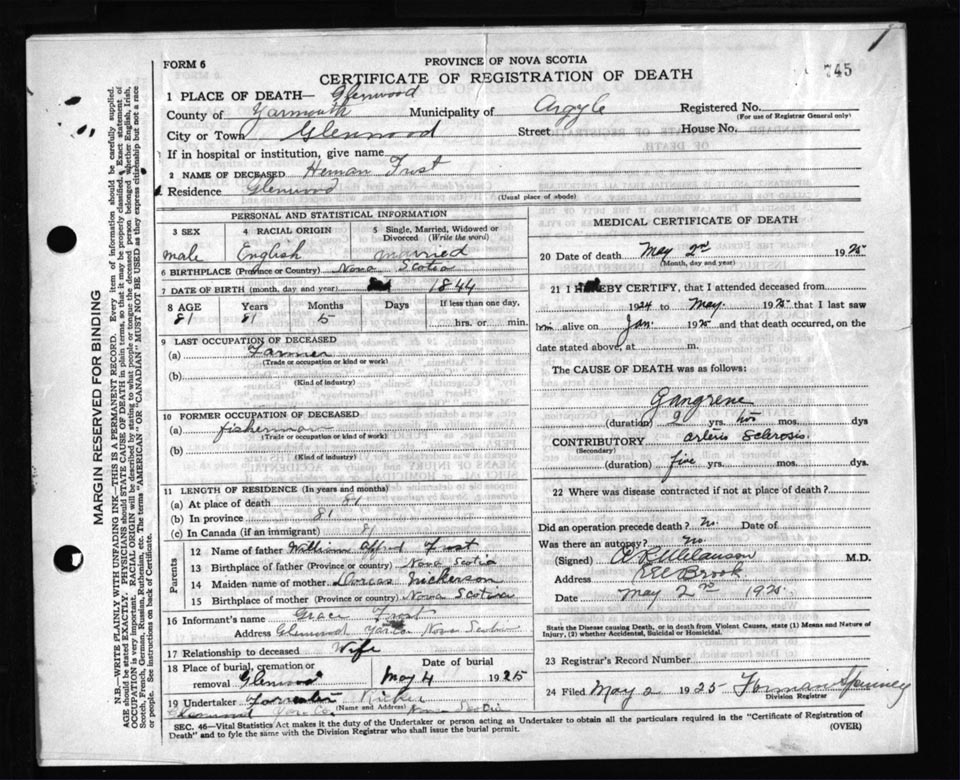 FORM 6
PROVINCE OF NOVA SCOTIA
CERTIFICATE OF REGISTRATION OF DEATH
745
1 PLACE OF DEATH— Glenwood
County of Yarmouth Municipality of Argyle Registered No.
(For use of Registrar General only)
City or Town Glenwood Street House No.
If in hospital or institution, give name
2 NAME OF DECEASED Heman Frost
Residence Glenwood
(Usual place of abode)
MARGIN RESERVED FOR BINDING
N.B.—WRITE PLAINLY WITH UNFADING INK—THIS IS A PERMANENT RECORD. Every item of information should be carefully supplied.
AGE should be stated EXACTLY. PHYSICIANS should STATE CAUSE OF DEATH in plain terms, so that it may be properly classified. Exact statement of
OCCUPATION is very important. RACIAL ORIGIN will be described by stating to what people or tongue the deceased person belonged whether English, Irish,
Scotch, French, German, Russian, Ruthenian, etc. The terms "AMERICAN" OR "CANADIAN" MUST NOT BE USED as they express citizenship but not a race
or people. See instructions on back of Certificate.
PERSONAL AND STATISTICAL INFORMATION
3 SEX 4 RACIAL ORIGIN 5 Single, Married, Widowed or
Divorced (Write the word)
male English married
6 BIRTHPLACE (Province or Country) Nova Scotia
7 DATE OF BIRTH (month, day, and year) 1844
8 AGE Years Months Days If less than one day,
81 81 5
hrs. or min.
9 LAST OCCUPATION OF DECEASED
(a) Farmer
(Trade or occupation or kind or work)
(b)
(Kind of industry)
10 FORMER OCCUPATION OF DECEASED
(a) fisherman
(Trade or occupation or kind of work)
(b)
(Kind of industry)
11 LENGTH OF RESIDENCE (In years and months)
(a) At place of death 81
(b) In province 81
(c) In Canada (if an immigrant) 81
Parents
12 Name of father William Alfred Frost
13 Birthplace of father (Province or country) Nova Scotia
14 Maiden name of mother Dorcas Nickerson
15 Birthplace of mother (Province or country) Nova Scotia
16 Informant's name Grace Frost
Address Glenwood Yarco Nova Scotia
17 Relationship to deceased Wife
18 Place of burial, cremation or Date of burial
removal Glenwood May 4 1925
19 Undertaker Forrester Ricker
(Name and Address)
Glenwood Nova Scotia
MEDICAL CERTIFICATE OF DEATH
20 Date of death May 2nd 1925
(Month, day and year)
21 I HEREBY CERTIFY, that I attended deceased from
1924 to May 1925 that I last saw
him alive on Jan. 1925 and that death occurred, on the
date stated above, at m.
The CAUSE OF DEATH was as follows:
Gangrene
(duration) 2 yrs. mos. dys
CONTRIBUTORY arterio Sclerosis
(Secondary)
(duration) five yrs. mos. dys.
22 Where was disease contracted if not at place of death?
Did an operation precede death? No. Date of
Was there an autopsy? No
(Signed) M.D.
Address Brook
Date May 2nd 1925
State the Disease causing Death, or in death from Violent Causes, state (1) Means and Nature of
Injury, (2) whether Accidental, Suicidal or Homicidal.
23 Registrar's Record Number
24 Filed May 2 1925 Forman Spinney
Division Registrar
SEC. 46—Vital Statistics Act makes it the duty of the Undertaker or person acting as Undertaker to obtain all the particulars required in the "Certificate of Registration of
Death" and to fyle the same with the Division Registrar who shall issue the burial permit. (OVER)